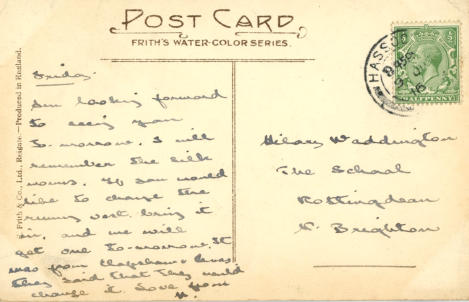 POST CARD
FRITH'S WATER-COLOR SERIES.
F. Frith & Co., Ltd., Reigate. — Produced in England.
HALFPENNY
HASSO
Friday.
Am looking forward
to seeing you
To-morrow. I will
remember the silk
worms. If you would
like to change the
running vest bring it
in, and we will
get one to-morrow. It
was from Clapham &
They said that they would
change it. Love from
H.
Hilary Waddington
The School
Rottingdean
N. Brighton